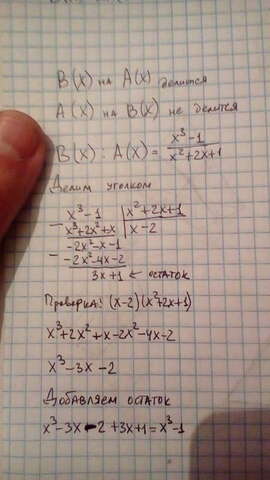 B(x) на A(x) делится
A(x) на B(x) не делится
B(x) : A(x) = x³-1 / x²+2x+1
Делим уголком
x³-1 | x²+2x+1
- x³+2x²+x | x-2
-2x²-x-1
- -2x²-4x-2
3x+1 ← остаток
Проверка: (x-2)(x²+2x+1)
x³+2x²+x-2x²-4x-2
x³-3x-2
Добавляем остаток
x³-3x-2+3x+1=x³-1